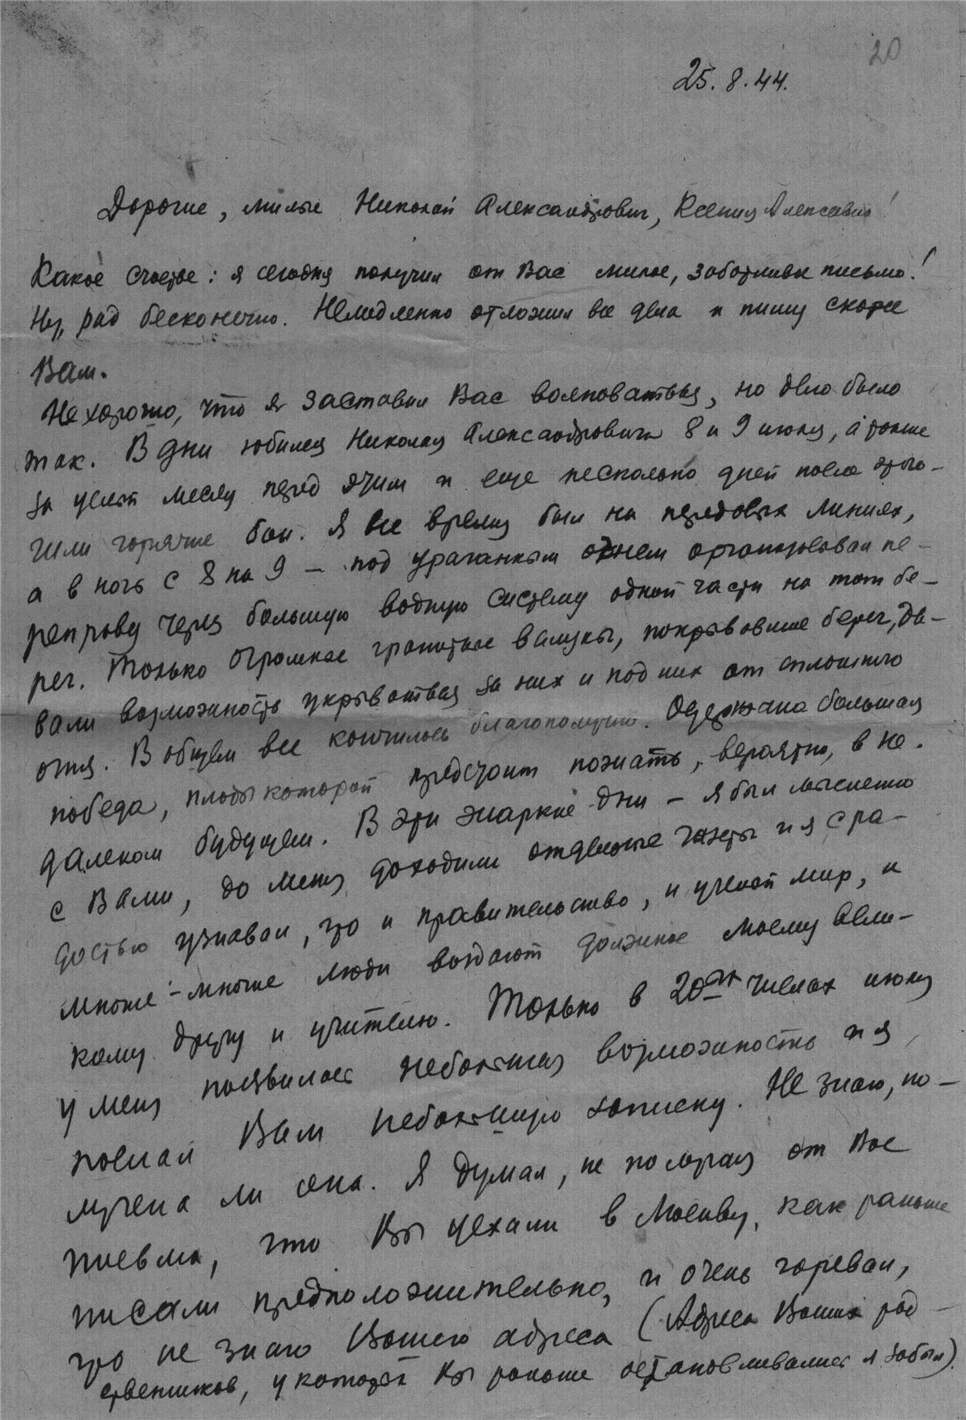 20
25.8.44.
Дорогие, милые Николай Александрович, Ксения Алексеевна!
Какое счастье: я сегодня получил от Вас милое, заботливое письмо!
Ну, рад бесконечно. Немедленно отложил все дела и пишу скорее
Вам.
Нехорошо, что я заставил Вас волноваться, но дело было
так. В дни юбилея Николая Александровича 8 и 9 июля, а также
за целый месяц перед этим и еще несколько дней после этого –
шли горячие бои. Я все время был на передовых линиях,
а в ночь с 8 на 9 – под ураганным огнем организовывал пе-
реправу через большую водную систему одной части на тот бе-
рег. Только огромные гранитные валуны, покрывавшие берег, да-
вали возможность укрываться за них и под них от сплошного
огня. В общем все кончилось благополучно. Одержана большая
победа, плоды которой предстоит пожать, вероятно, в не-
далеком будущем. В эти жаркие дни – я был мысленно
с Вами, до меня доходили отдельные газеты и я с ра-
достью узнавал, что и правительство, и ученый мир, и
многие-многие люди воздают должное моему вели-
кому другу и учителю. Только в 20ых числах июля
у меня появилась небольшая возможность и я
послал Вам небольшую записку. Не знаю, по-
лучена ли она. Я думал, не получая от Вас
письма, что Вы уехали в Москву, как раньше
писали предположительно, и очень горевал,
что не знаю Вашего адреса (Адреса Ваших род-
ственников, у которых Вы раньше останавливались я забыл).